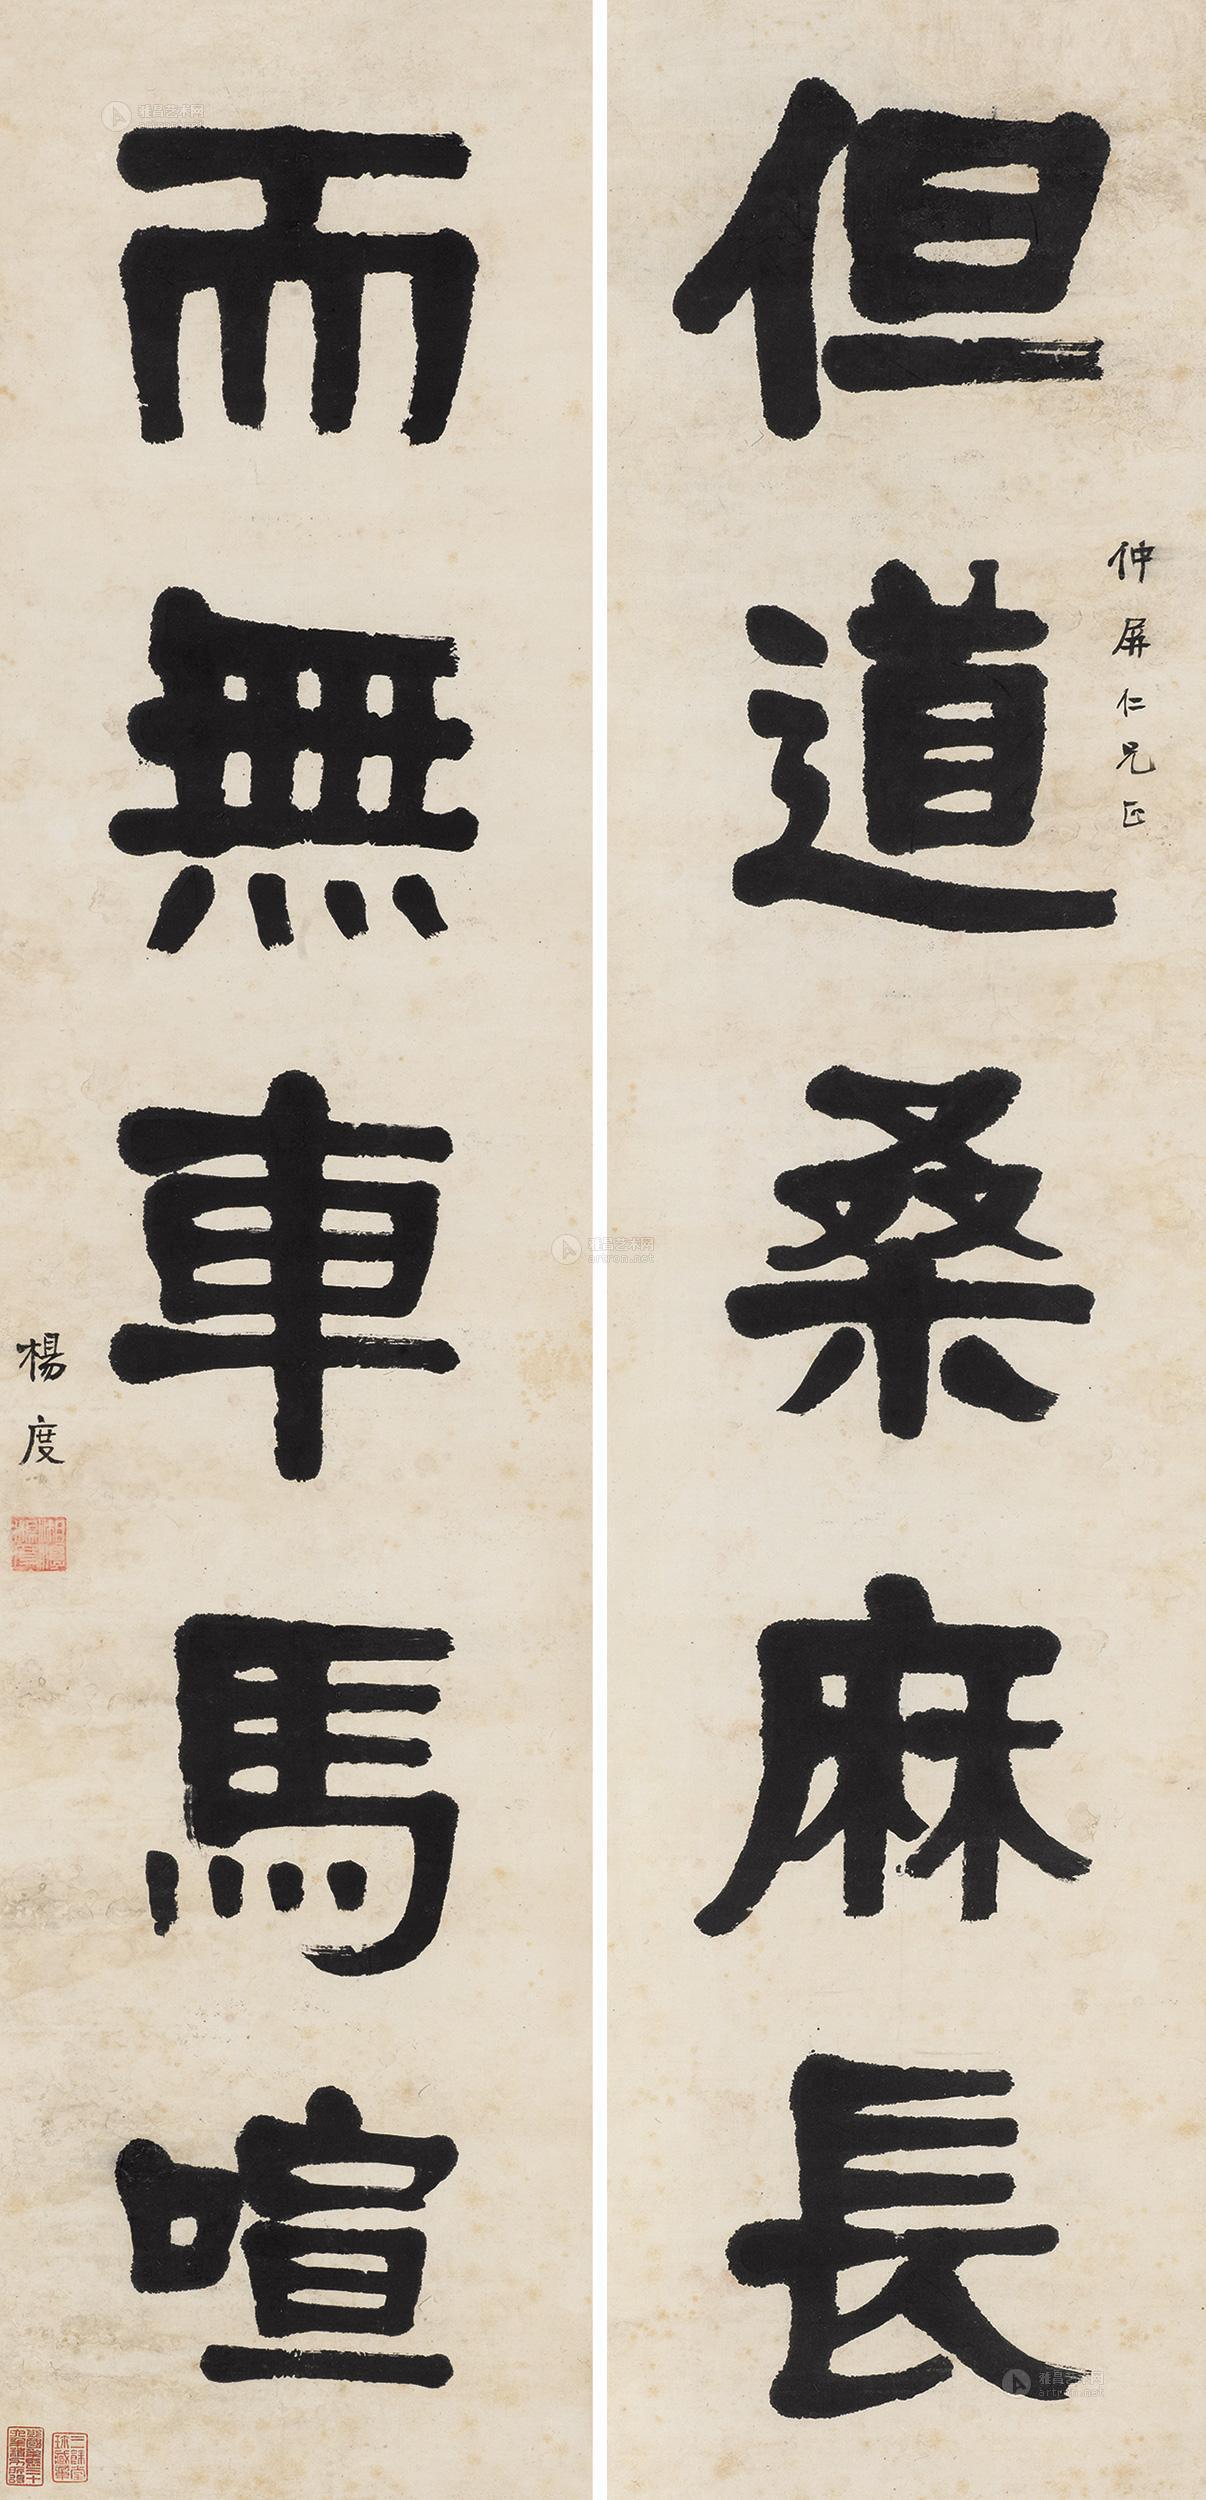 但道桑麻長
仲屏仁兄正
而無車馬喧
楊度
雅昌艺术网
artron.net